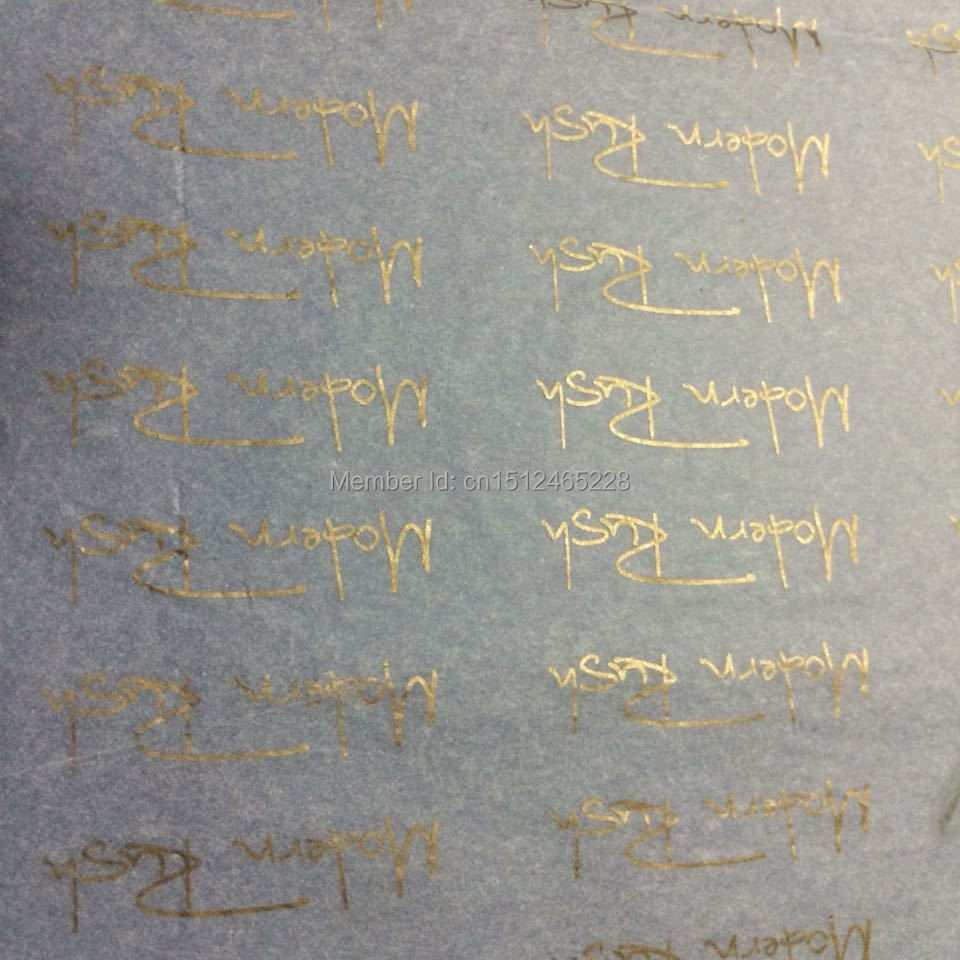 Modern Rush
Modern Rush
Modern Rush
Modern Rush
Modern Rush
Modern Rush
Modern Rush
Modern Rush
Modern Rush
Modern Rush
Modern Rush
Modern Rush
Modern Rush
Modern Rush
Member Id: cn1512465228